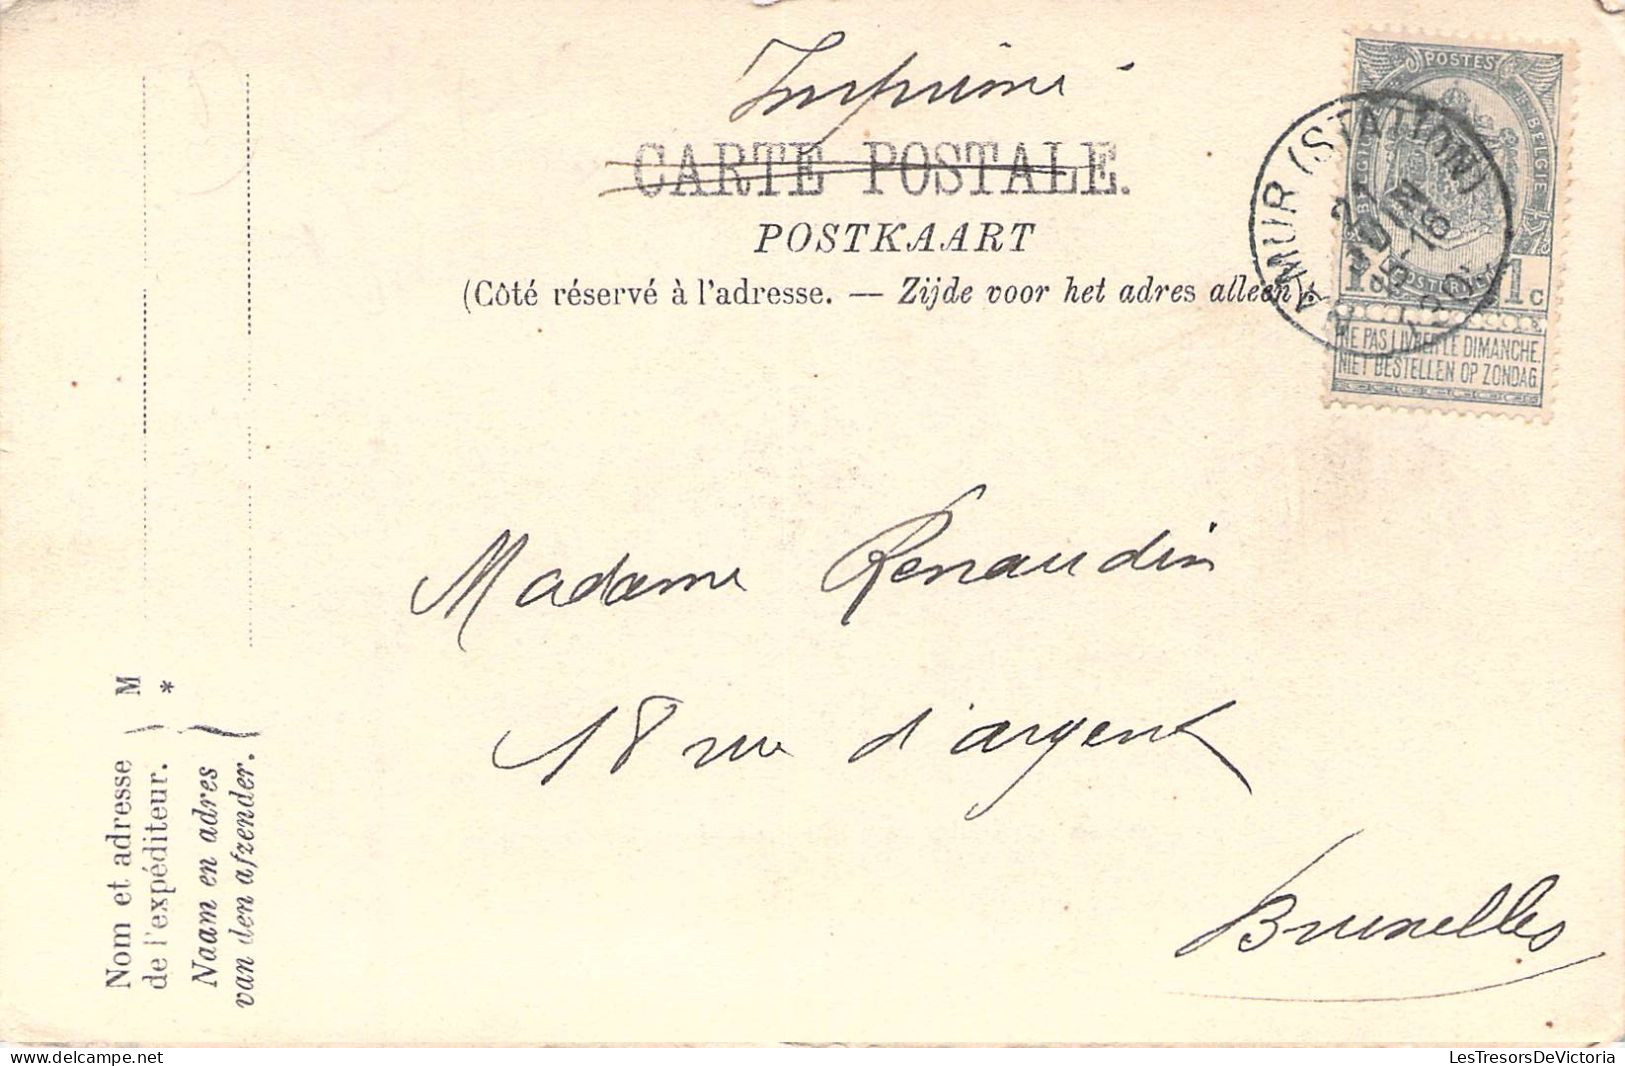 Imprimé
CARTE POSTALE.
POSTKAART
(Côté réservé à l'adresse. — Zijde voor het adres alleen).
POSTES
NAMUR (STATION)
1 c
NE PAS LIVRER LE DIMANCHE.
NIET BESTELLEN OP ZONDAG
Madame Renaudin
18 rue d'argent
Bruxelles
Nom et adresse
de l'expéditeur.
M
*
Naam en adres
van den afzender.
LesTresorsDeVictoria